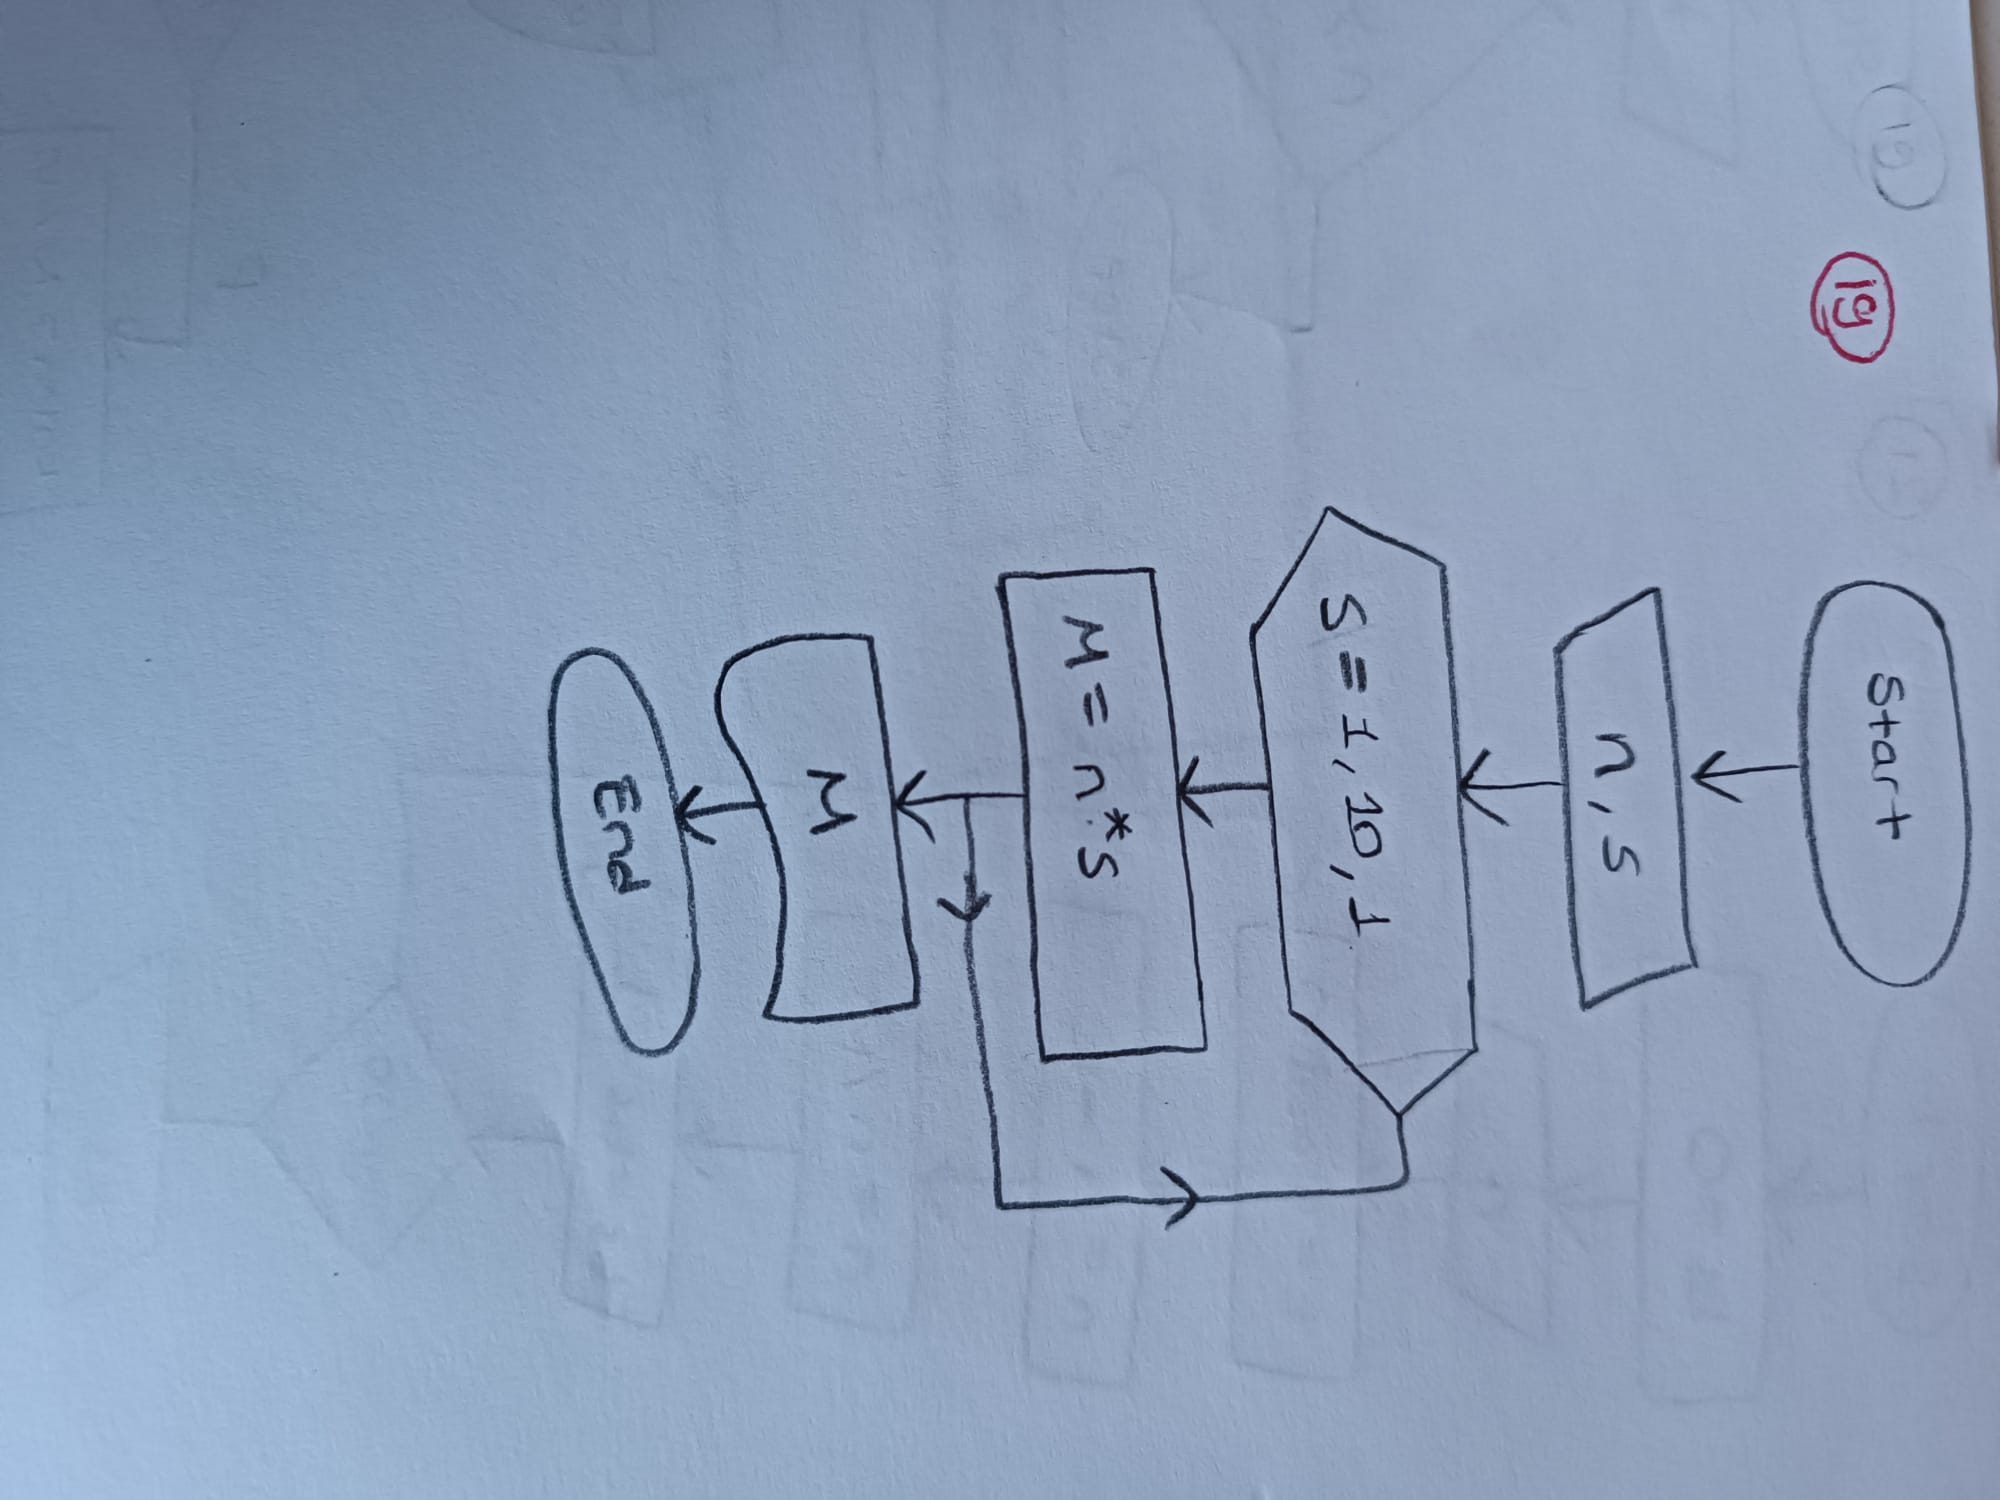 19
Start
n, s
S = 1, 10, 1
M = n * s
M
End